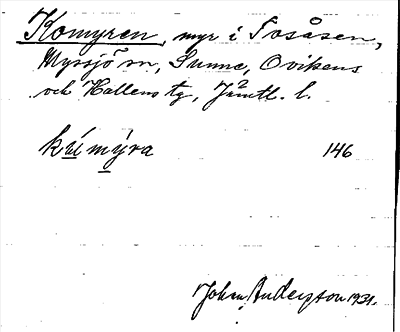 Komyren, myr i Fosåsen,
Myssjö sn, Sunne, Ovikens
och Hallens tg, Jämtl. l.
146
Johan Anderzson 1931.